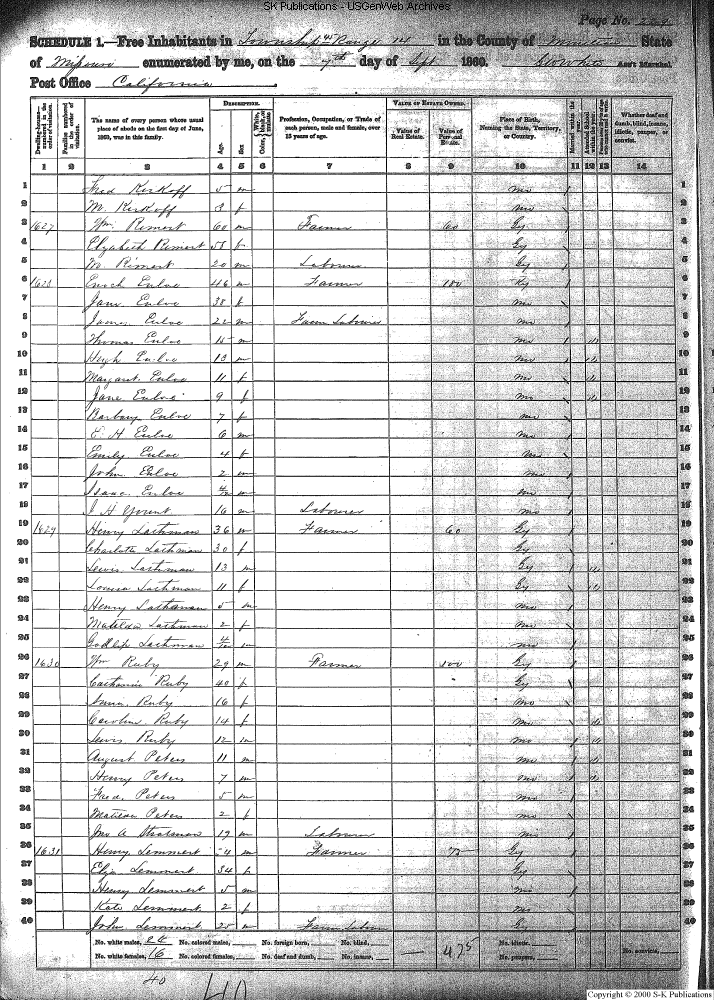 SK Publications - USGenWeb Archives
Page No.
SCHEDULE 1.—Free Inhabitants in Township 45 Range 14 in the County of State
of Missouri enumerated by me, on the 7th day of Sept 1860. Ass't Marshal
Post Office California
DESCRIPTION. VALUE OF ESTATE OWNED.
Dwelling-houses—numbered in the order of visitation. Families numbered in the order of visitation. The name of every person whose usual place of abode on the first day of June, 1860, was in this family. Age. Sex Color, White, black, or mulatto Profession, Occupation, or Trade of each person, male and female, over 15 years of age. Value of Real Estate. Value of Personal Estate. Place of Birth, Naming the State, Territory, or Country. Married within the year. Attended School within the year. Whether deaf and dumb, blind, insane, idiotic, pauper, or convict.
1 2 3 4 5 6 7 8 9 10 11 12 13 14
1 Fred Kirkoff 5 m Mo 1
2 M. Kirkoff 3 f Mo 2
3 1627 Wm Rimert 60 m Farmer 60 Gy 3
4 Elizabeth Rimert 58 f Gy 4
5 M Rimert 20 m Laborer Gy 5
6 1628 Enoch Enloe 46 m Farmer 180 Ky 6
7 Jane Enloe 38 f Mo 7
8 James Enloe 22 m Farm Laborer Mo 8
9 Thomas Enloe 15 m Mo 9
10 Hugh Enloe 13 m Mo 10
11 Margaret Enloe 11 f Mo 11
12 Jane Enloe 9 f Mo 12
13 Barbary Enloe 7 f Mo 13
14 E. H Enloe 6 m Mo 14
15 Emily Enloe 4 f Mo 15
16 John Enloe 2 m Mo 16
17 Isaac Enloe m Mo 17
18 J A Yount 16 m Laborer Mo 18
19 1629 Henry Lathman 36 m Farmer 60 Gy 19
20 Charlotte Lathman 30 f Gy 20
21 Lewis Lathman 13 m Gy 21
22 Louisa Lathman 11 f Gy 22
23 Henry Lathman 5 m Mo 23
24 Matilda Lathman 2 f Mo 24
25 Godlip Lathman m Mo 25
26 1630 Wm Ruby 29 m Farmer 100 Gy 26
27 Catharine Ruby 40 f Gy 27
28 Anna Ruby 16 f Mo 28
29 Caroline Ruby 14 f Mo 29
30 Lewis Ruby 12 m Mo 30
31 August Peters 11 m Mo 31
32 Henry Peters 7 m Mo 32
33 Fred. Peters 5 m Mo 33
34 Matilda Peters 2 f Mo 34
35 Jno A Stratman 19 m Laborer Mo 35
36 1631 Henry Lemmert m Farmer 75 Gy 26
37 Eliza Lemmert 34 f Gy 27
38 Henry Lemmert 5 m Mo 28
39 Kate Lemmert 2 f Mo 29
40 John Lemmert 25 m Farm Labor Gy 40
No. white males, 24 No. colored males, No. foreign born, No. blind, No. idiotic,
No. white females, 16 No. colored females, No. deaf and dumb, No. insane, 475 No. paupers, No. convicts,
40
40
Copyright © 2000 S-K Publications